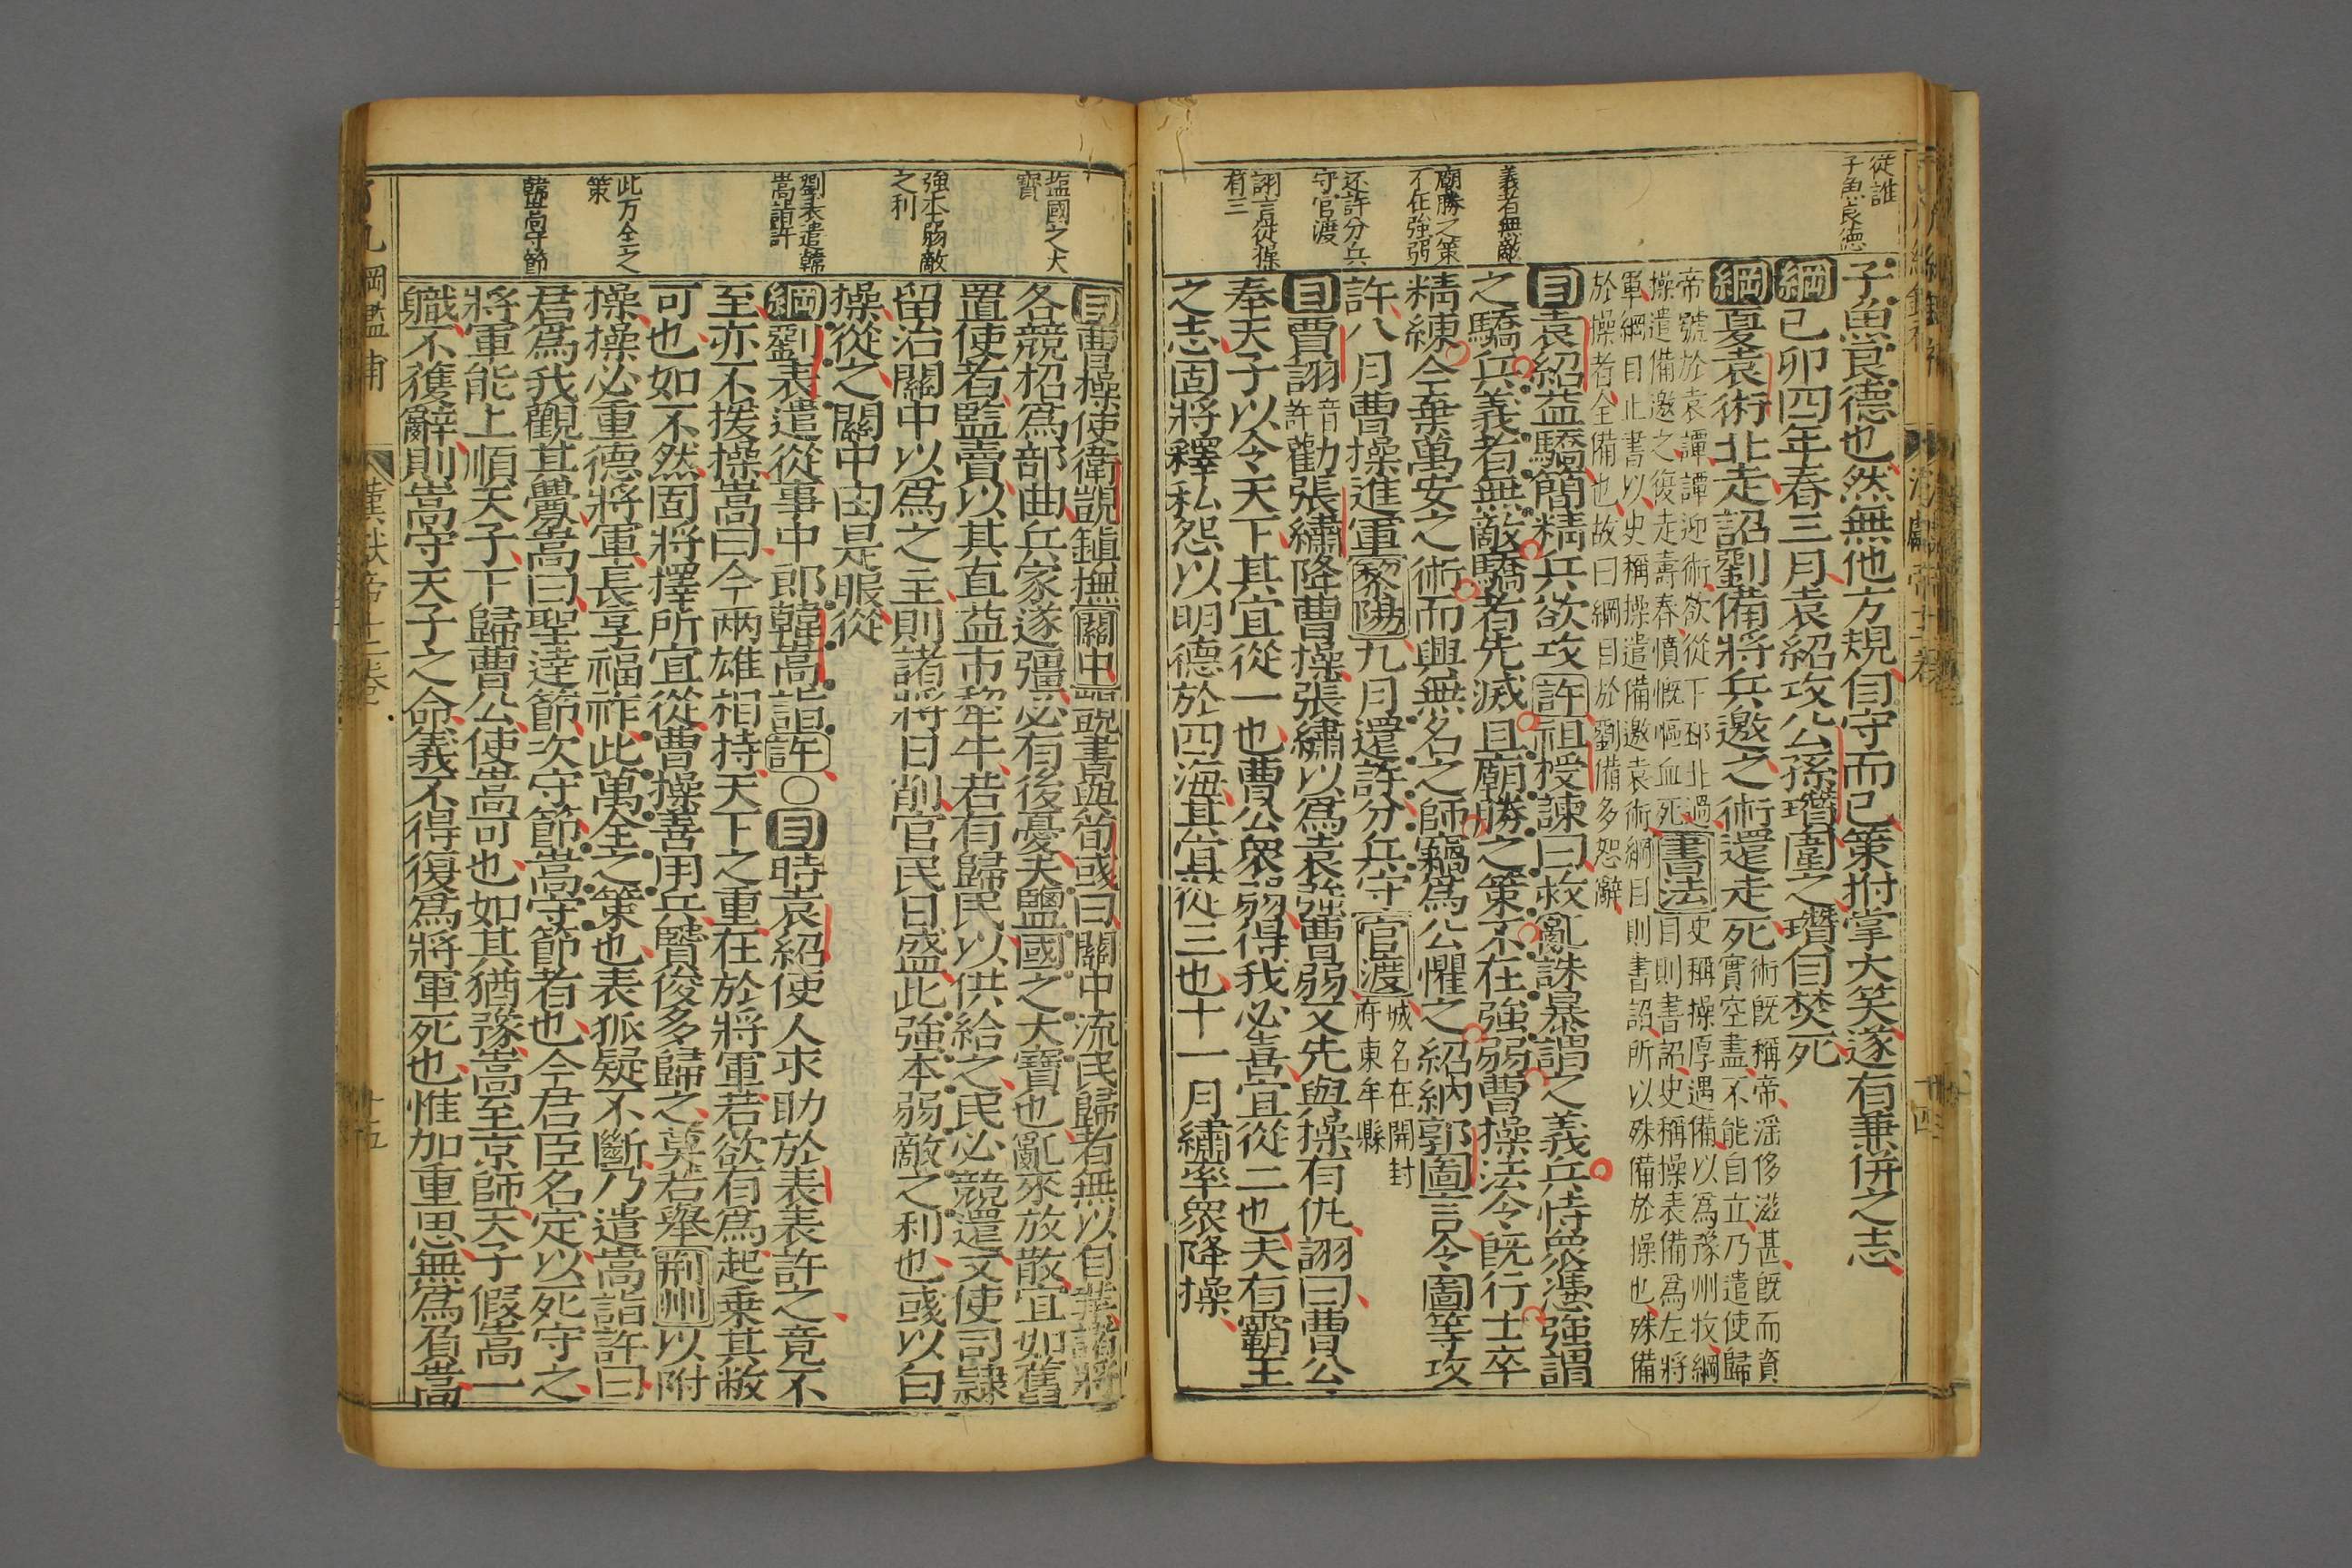 從誰
子魚良德
義者無敵
廟勝之策
不在強弱
还許分兵
守官渡
詡言從操
有三
子魚良德也然無他方規自守而已策拊掌大笑遂有兼併之志
綱己卯四年春三月袁紹攻公孫瓚圍之瓚自焚死
綱夏袁術北走詔劉備將兵邀之術還走死
術既稱帝滛侈滋甚既而資
實空盡不能自立乃遣使歸
帝號於袁譚譚迎術欲從下邳北過
操遣備邀之復走壽春憤慨嘔血死
書法
史稱操厚遇備以為豫州牧綱
目則書詔史稱操表備為左將
軍綱目止書以史稱操遣備邀袁術綱目則書詔所以殊備於操也殊備
於操者全備也故曰綱目於劉備多恕辭
目袁紹益驕簡精兵欲攻許祖授諫曰救亂誅暴謂之義兵恃衆憑強謂
之驕兵義者無敵驕者先滅且廟勝之策不在強弱曹操法令既行士卒
精練今棄萬安之術而興無名之師竊為公懼之紹納郭圖言令圖等攻
許八月曹操進軍黎陽九月還許分兵守官渡
城名在開封
府東牟縣
目賈詡
音
許
勸張繡降曹操張繡以為袁強曹弱又先與操有仇詡曰曹公
奉天子以令天下其宜從一也曹公衆弱得我必喜宜從二也夫有霸王
之志固將釋私怨以明德於四海其宜從三也十一月繡率衆降操
塩國之大
寳
強本弱敵
之利
劉表遣韓
嵩詣許
此万全之
策
韓嵩守節
目曹操使衛覬鎮撫關中覬書與荀彧曰關中流民歸者無以自業諸將
各競招為部曲兵家遂彊必有後憂夫鹽國之大寶也亂來放散宜如舊
置使者監賣以其直益市犂牛若有歸民以供給之民必競還又使司隷
留治關中以為之主則諸將日削官民日盛此強本弱敵之利也彧以白
操從之關中由是服從
綱劉表遣從事中郎韓嵩詣許○目時袁紹使人求助於表表許之竟不
至亦不援操嵩曰今兩雄相持天下之重在於將軍若欲有為起乗其敝
可也如不然固將擇所宜從曹操善用兵賢俊多歸之莫若舉荊州以附
操操必重德將軍長享福祚此萬全之策也表狐疑不斷乃遣嵩詣許曰
君為我觀其釁嵩曰聖達節次守節嵩守節者也今君臣名定以死守之
將軍能上順天子下歸曹公使嵩可也如其猶豫嵩至京師天子假嵩一
職不獲辭則嵩守天子之命義不得復為將軍死也惟加重思無為負嵩
綱鑑補
漢獻帝十二卷
十五